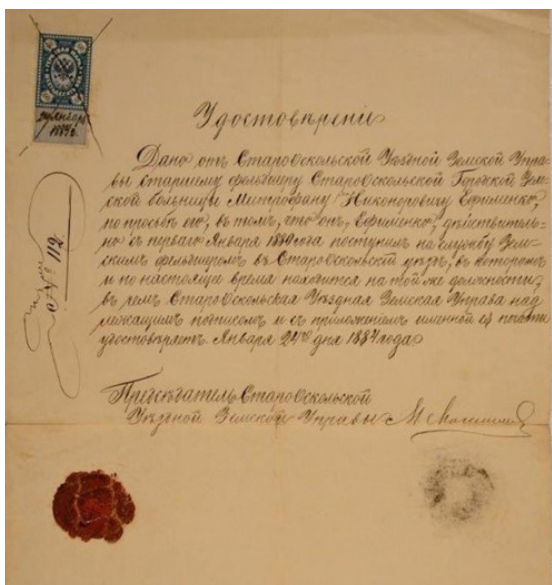 24 Января
1884 г.
Удостовѣреніе
Дано отъ Старооскольской Уѣздной Земской Упра-
вы старшему фельдшеру Старооскольской Городской Зем-
ской больницы Митрофану Никоноровичу Ефименко,
по просьбѣ его, въ томъ, что онъ, Ефименко, дѣйствитель-
но съ перваго Января 1880 года поступилъ на службу Зем-
скимъ фельдшеромъ въ Старооскольскій уѣздъ, въ которомъ
и по настоящее время находится на той же должности,
въ чемъ Старооскольская Уѣздная Земская Управа над
лежащимъ подписомъ и съ приложеніемъ именной ея печати
удостовѣряетъ. Января 24го дня 1884 года
№ 112
Предсѣдатель Старооскольской
Уѣздной Земской Управы